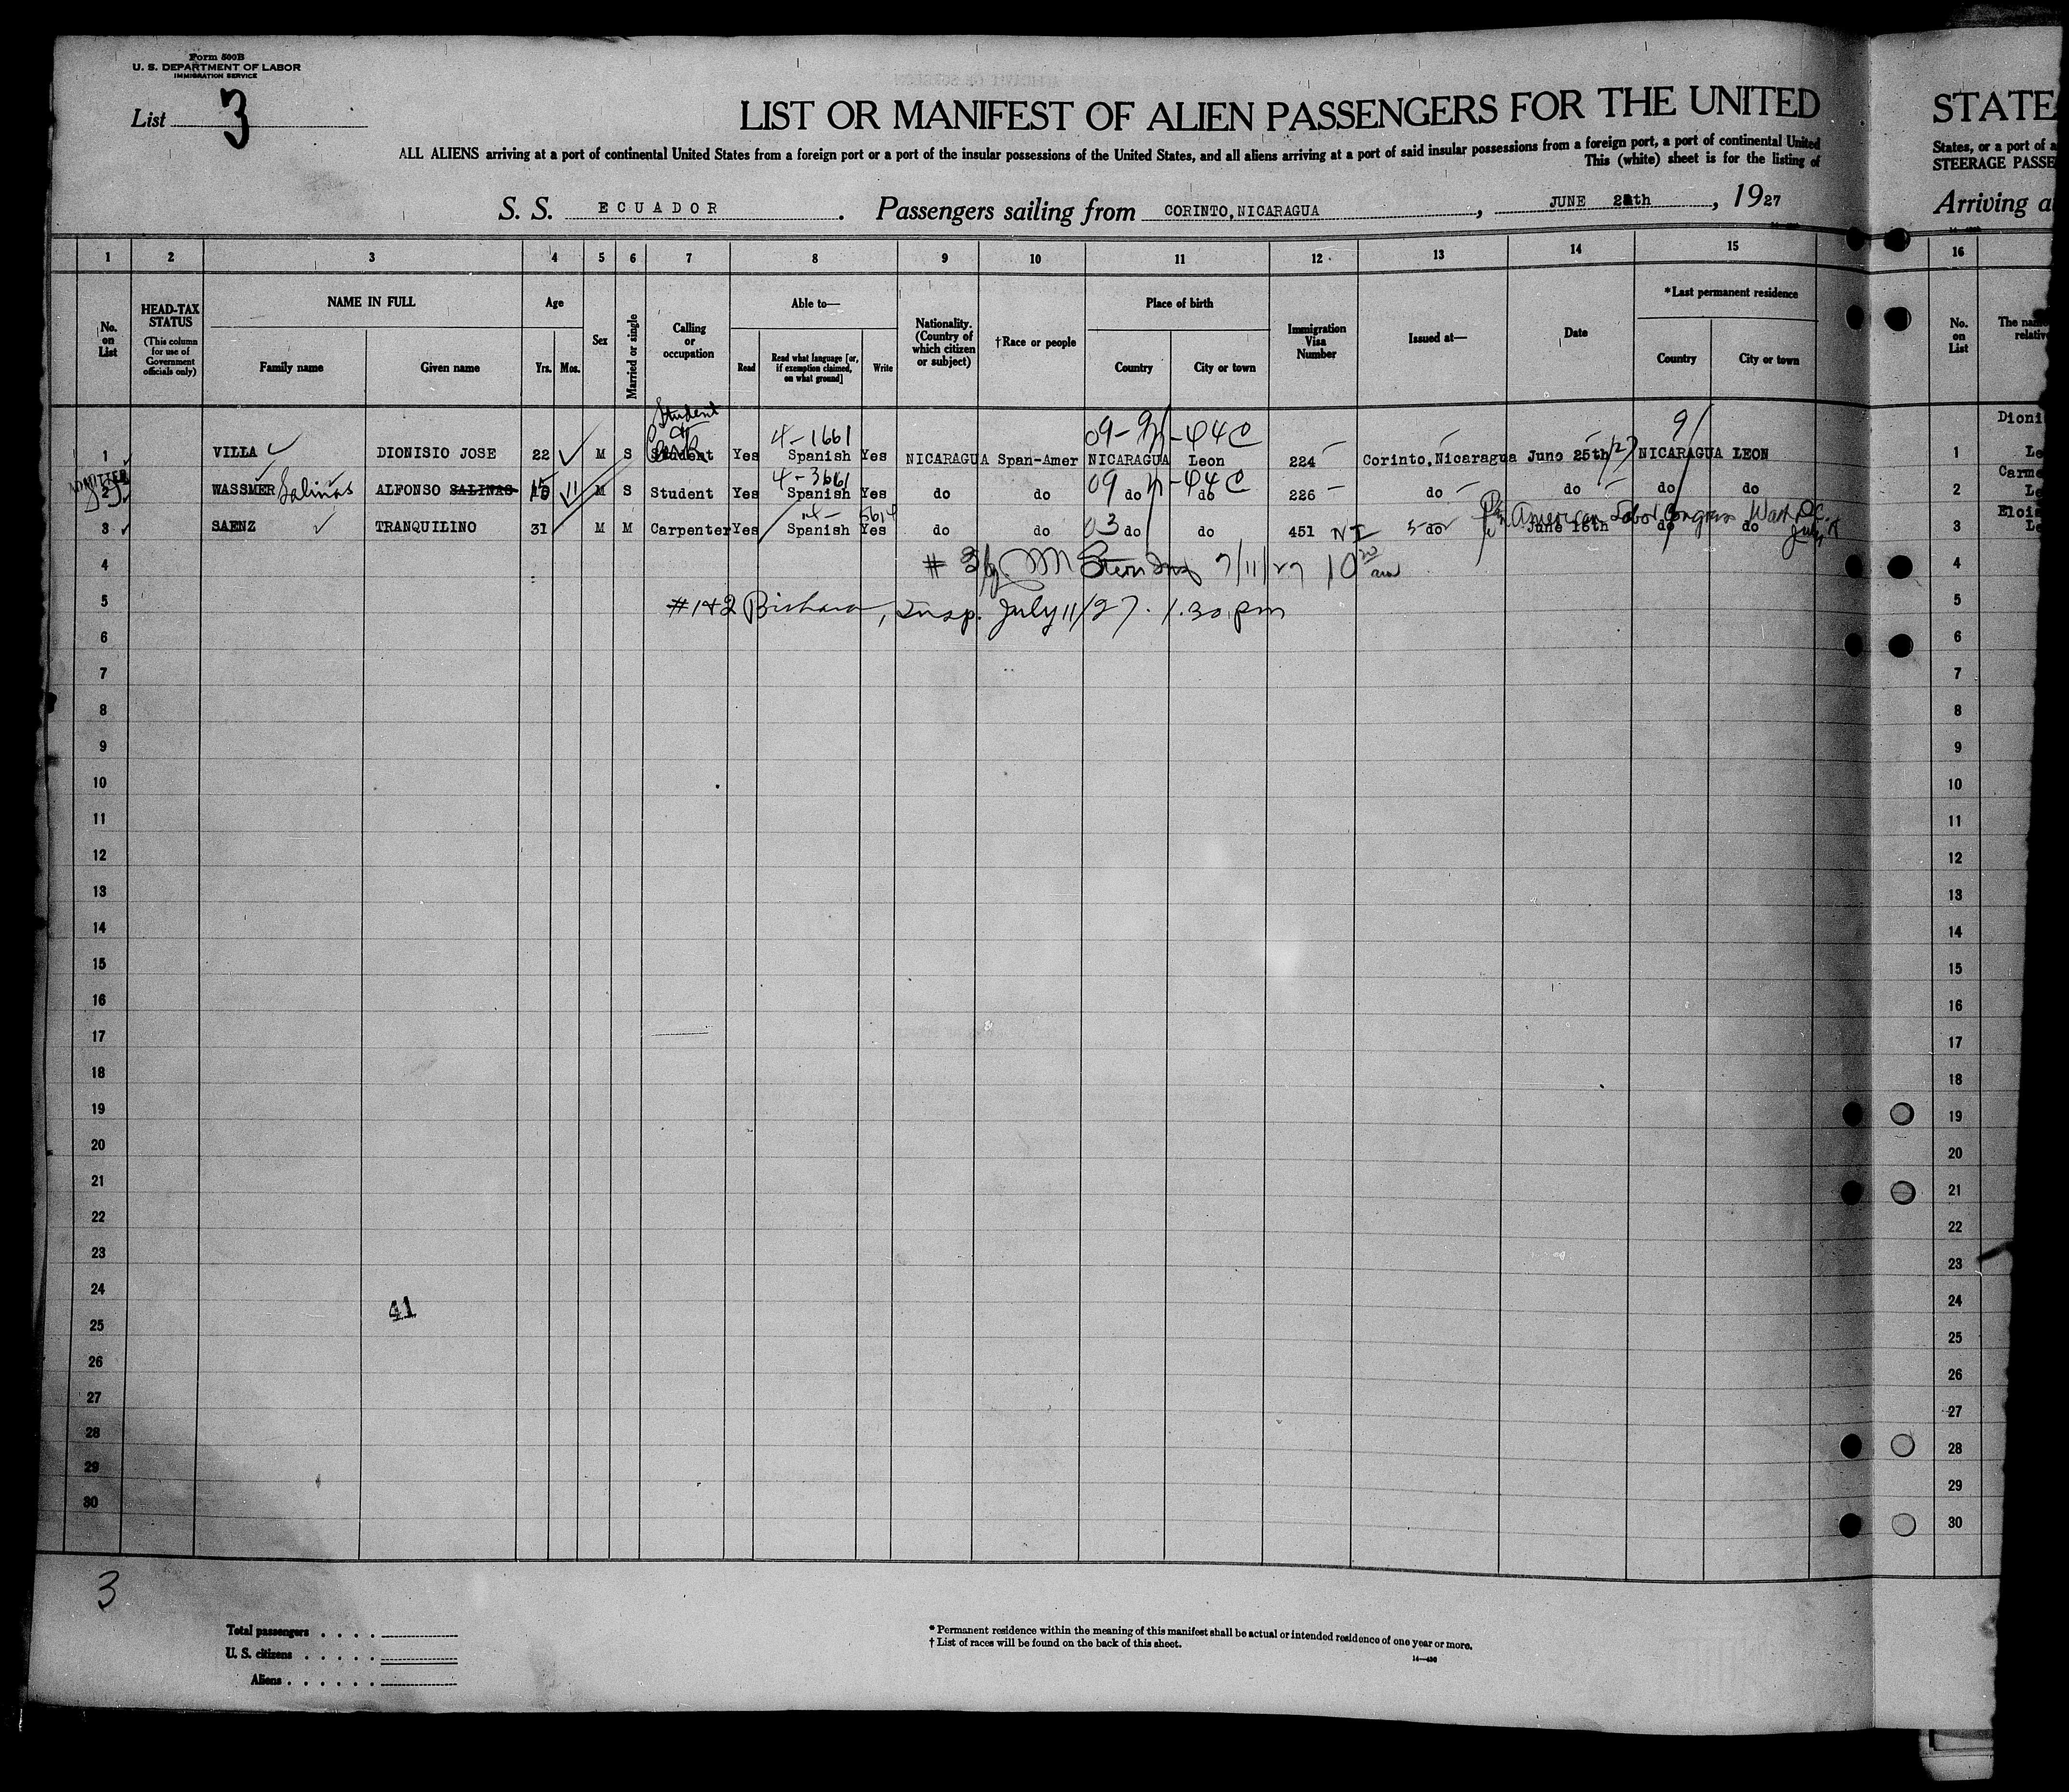 Form 500B
U. S. DEPARTMENT OF LABOR
IMMIGRATION SERVICE
List 3
LIST OR MANIFEST OF ALIEN PASSENGERS FOR THE UNITED
ALL ALIENS arriving at a port of continental United States from a foreign port or a port of the insular possessions of the United States, and all aliens arriving at a port of said insular possessions from a foreign port, a port of continental United
This (white) sheet is for the listing of
S. S. ECUADOR. Passengers sailing from CORINTO, NICARAGUA, JUNE th, 1927
STATE
States, or a port of a
STEERAGE PASSE
Arriving a
1 2 3 4 5 6 7 8 9 10 11 12 13 14 15 16
No. on List
HEAD-TAX STATUS
(This column for use of Government officials only)
NAME IN FULL
Family name
Given name
Age
Yrs. Mos.
Sex
Married or single
Calling or occupation
Able to—
Read
Read what language [or, if exemption claimed, on what ground]
Write
Nationality. (Country of which citizen or subject)
†Race or people
Place of birth
Country
City or town
Immigration Visa Number
Issued at—
Date
*Last permanent residence
Country
City or town
No. on List
The name
relativ
Student
4-1661
1 VILLA DIONISIO JOSE 22 M S Student Yes Spanish Yes NICARAGUA Span-Amer NICARAGUA Leon 224 Corinto, Nicaragua June 25th/27 NICARAGUA LEON
Dioni
1 Le
ADMITTED
4-3661
2 WASSMER Salinas ALFONSO SALINAS 15 11 M S Student Yes Spanish Yes do do 09 do do 226 do do do do
Carme
2 Le
5614
3 SAENZ TRANQUILINO 31 M M Carpenter Yes Spanish Yes do do 03 do do 451 NI do June 16th do do
Pan American Labor Congress Wash. D.C. July
Elois
3 Le
4 #3 7/11/27 10 30 am
5 #1+2 Insp. July 11/27. 1.30 pm
6
7
8
9
10
11
12
13
14
15
16
17
18
19
20
21
22
23
24
41
25
26
27
28
29
30
4
5
6
7
8
9
10
11
12
13
14
15
16
17
18
19
20
21
22
23
24
25
26
27
28
29
30
3
Total passengers . . . .
U. S. citizens . . . . .
Aliens . . . . . .
* Permanent residence within the meaning of this manifest shall be actual or intended residence of one year or more.
† List of races will be found on the back of this sheet.
14—430